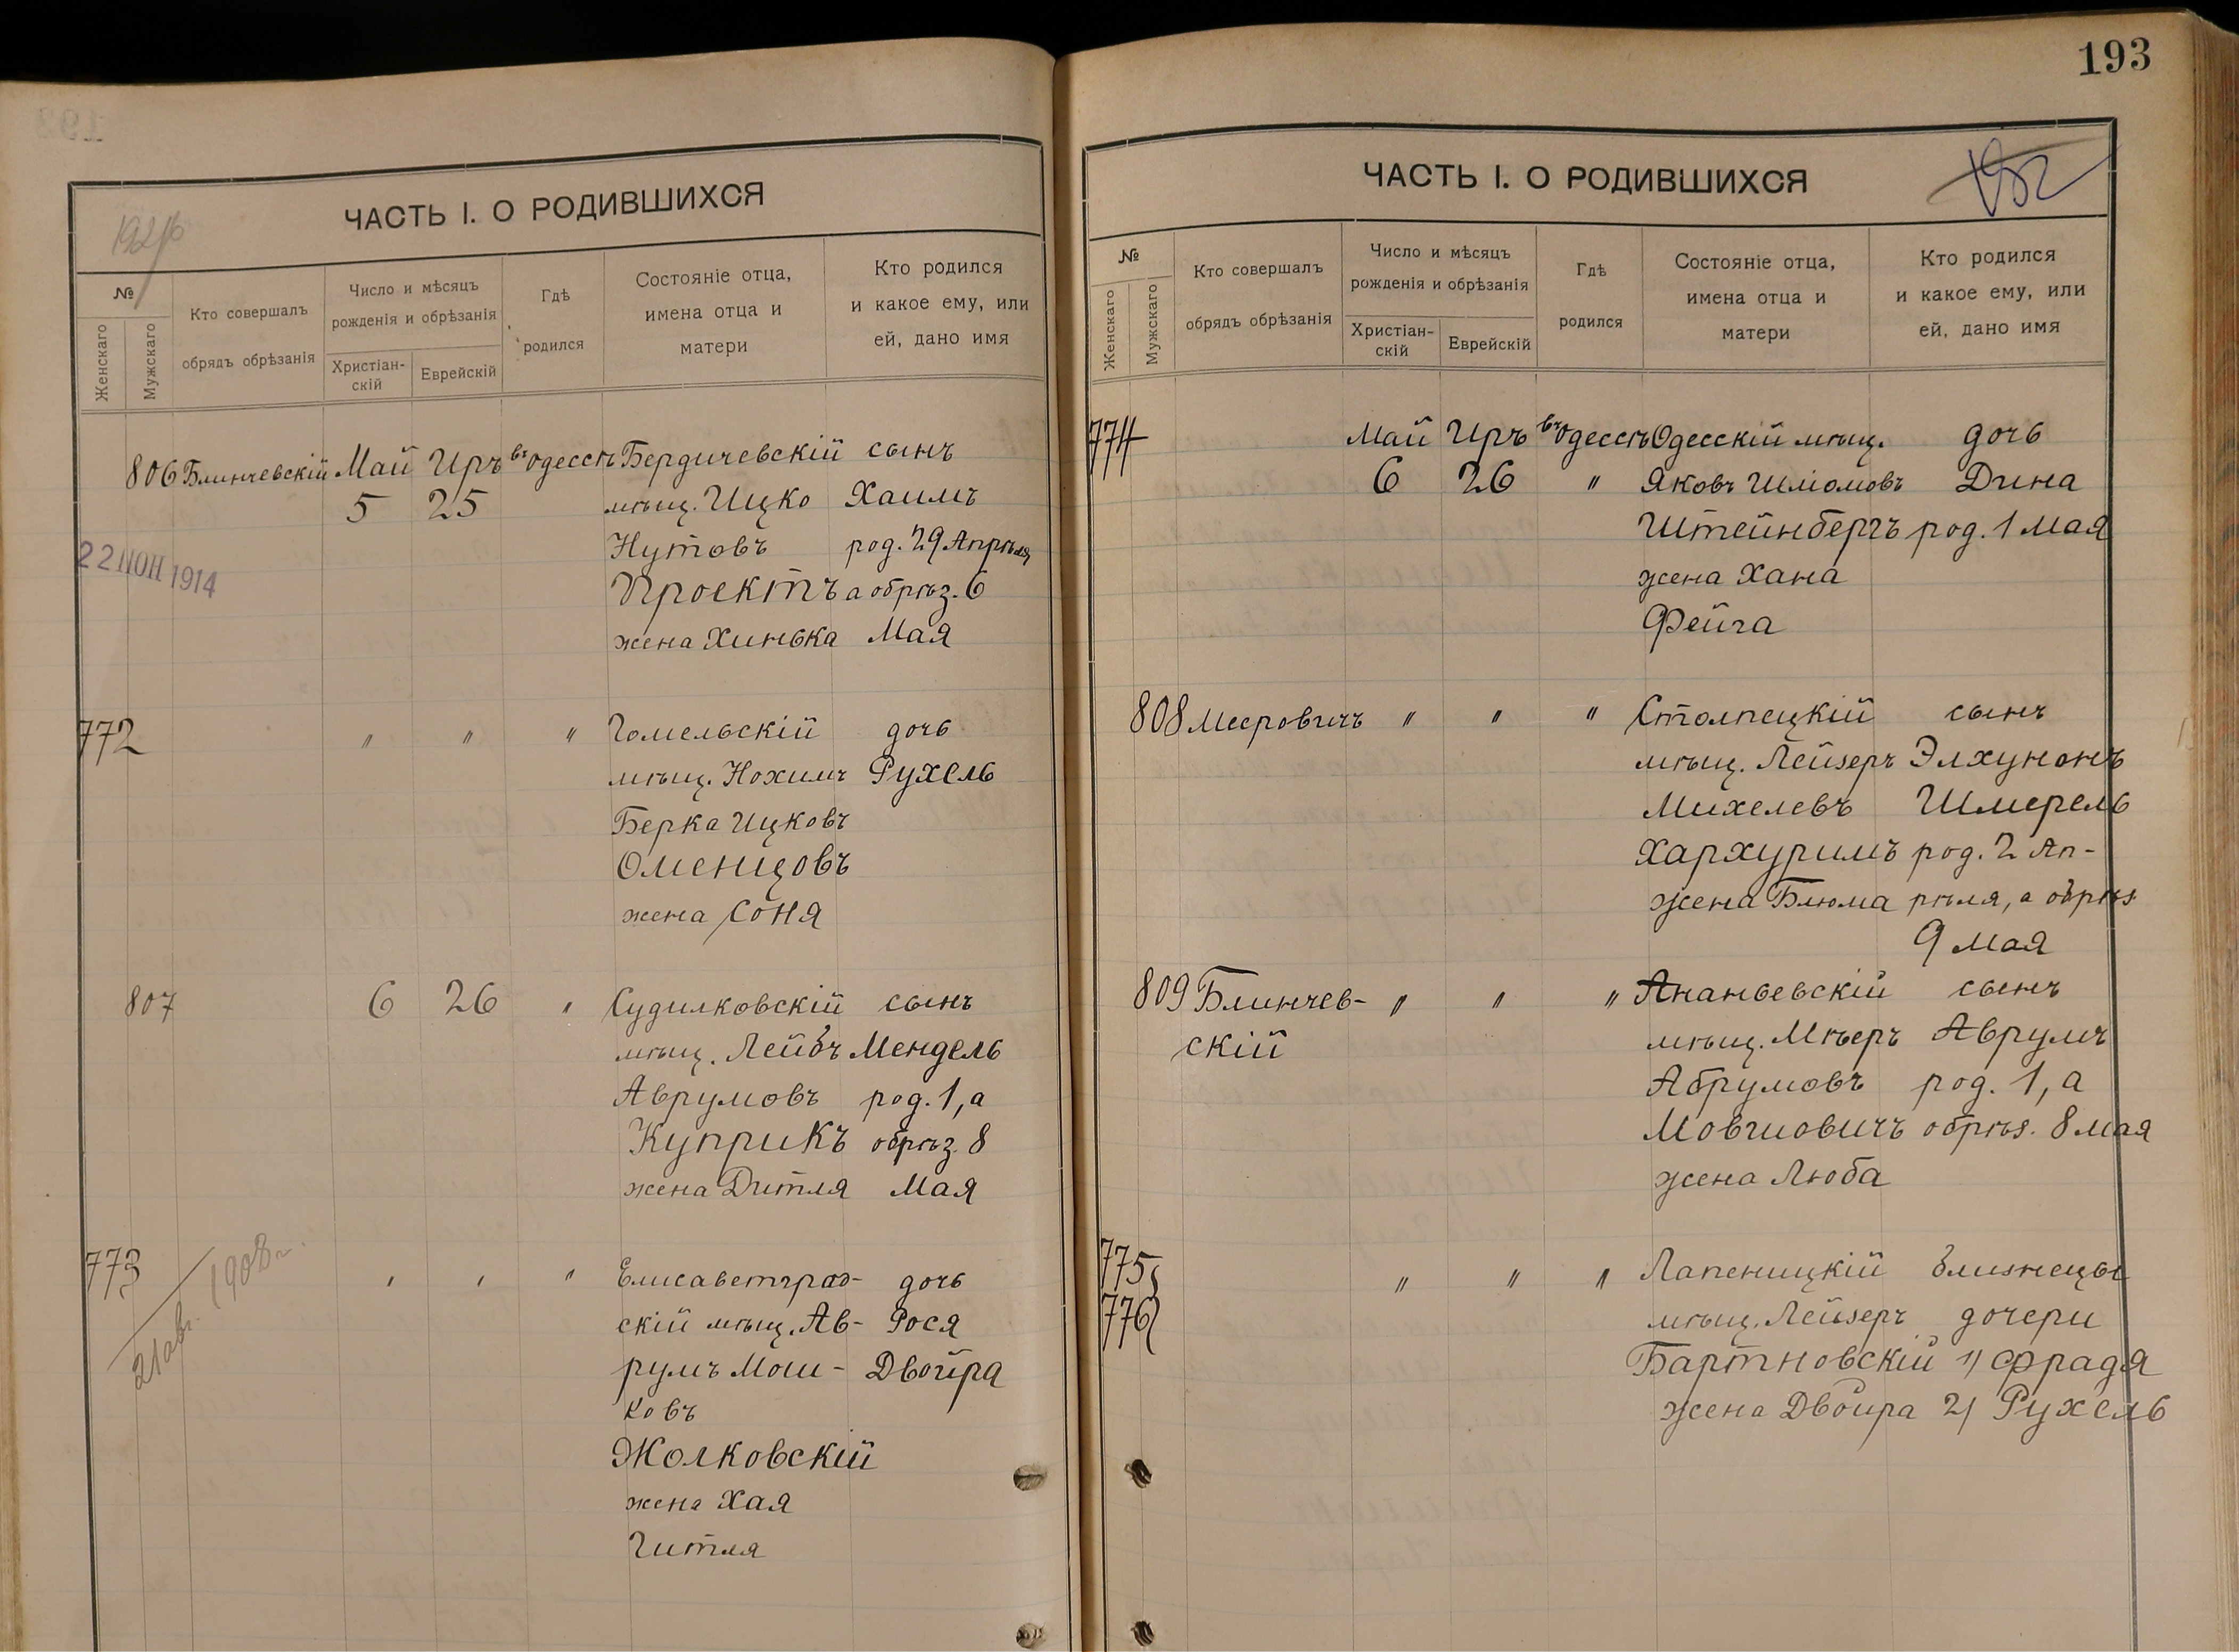 193
ЧАСТЬ I. О РОДИВШИХСЯ
№
Женскаго
Мужскаго
Кто совершалъ
обрядъ обрѣзанія
Число и мѣсяцъ
рожденія и обрѣзанія
Христіан-
скій
Еврейскій
Гдѣ
родился
Состояніе отца,
имена отца и
матери
Кто родился
и какое ему, или
ей, дано имя
806 Блинчевскій Май Иръ въ Одессѣ Бердичевскій сынъ
5 25 мѣщ. Ицко Хаимъ
Нутовъ род. 29 Апрѣля
22 ІЮН 1914
Проектъ а обрѣз. 6
жена Хинька Мая
772 " " " Гомельскій дочь
мѣщ. Нохимъ Рухель
Берка Ицковъ
Оменцовъ
жена Соня
807 6 26 " Судилковскій сынъ
мѣщ. Лейбъ Мендель
Аврумовъ род. 1, а
Куприкъ обрѣз. 8
жена Дитля Мая
773 " " " Елисаветград- дочь
21 авг. 1908 г.
скій мѣщ. Ав- Рося
румъ Мош- Двойра
ковъ
Жолковскій
жена Хая
Гитля
ЧАСТЬ I. О РОДИВШИХСЯ
192
№
Женскаго
Мужскаго
Кто совершалъ
обрядъ обрѣзанія
Число и мѣсяцъ
рожденія и обрѣзанія
Христіан-
скій
Еврейскій
Гдѣ
родился
Состояніе отца,
имена отца и
матери
Кто родился
и какое ему, или
ей, дано имя
774 Май Иръ въ Одессѣ Одесскій мѣщ. дочь
6 26 " Яковъ Шліомовъ Дина
Штейнбергъ род. 1 Мая
жена Хана
Фейга
808 Меровичъ " " " Столпецкій сынъ
мѣщ. Лейзеръ Элхунонъ
Михелевъ Шмерель
Хархуримъ род. 2 Ап-
жена Блюма рѣля, а обрѣз
9 Мая
809 Блинчев- " " " Ананьевскій сынъ
скій мѣщ. Мѣеръ Аврумъ
Абрумовъ род. 1, а
Мовшовичъ обрѣз. 8 мая
жена Люба
775 " " " Лапеницкій близнецы
776 мѣщ. Лейзеръ дочери
Бартновскій 1) Фрадя
жена Двойра 2) Рухель